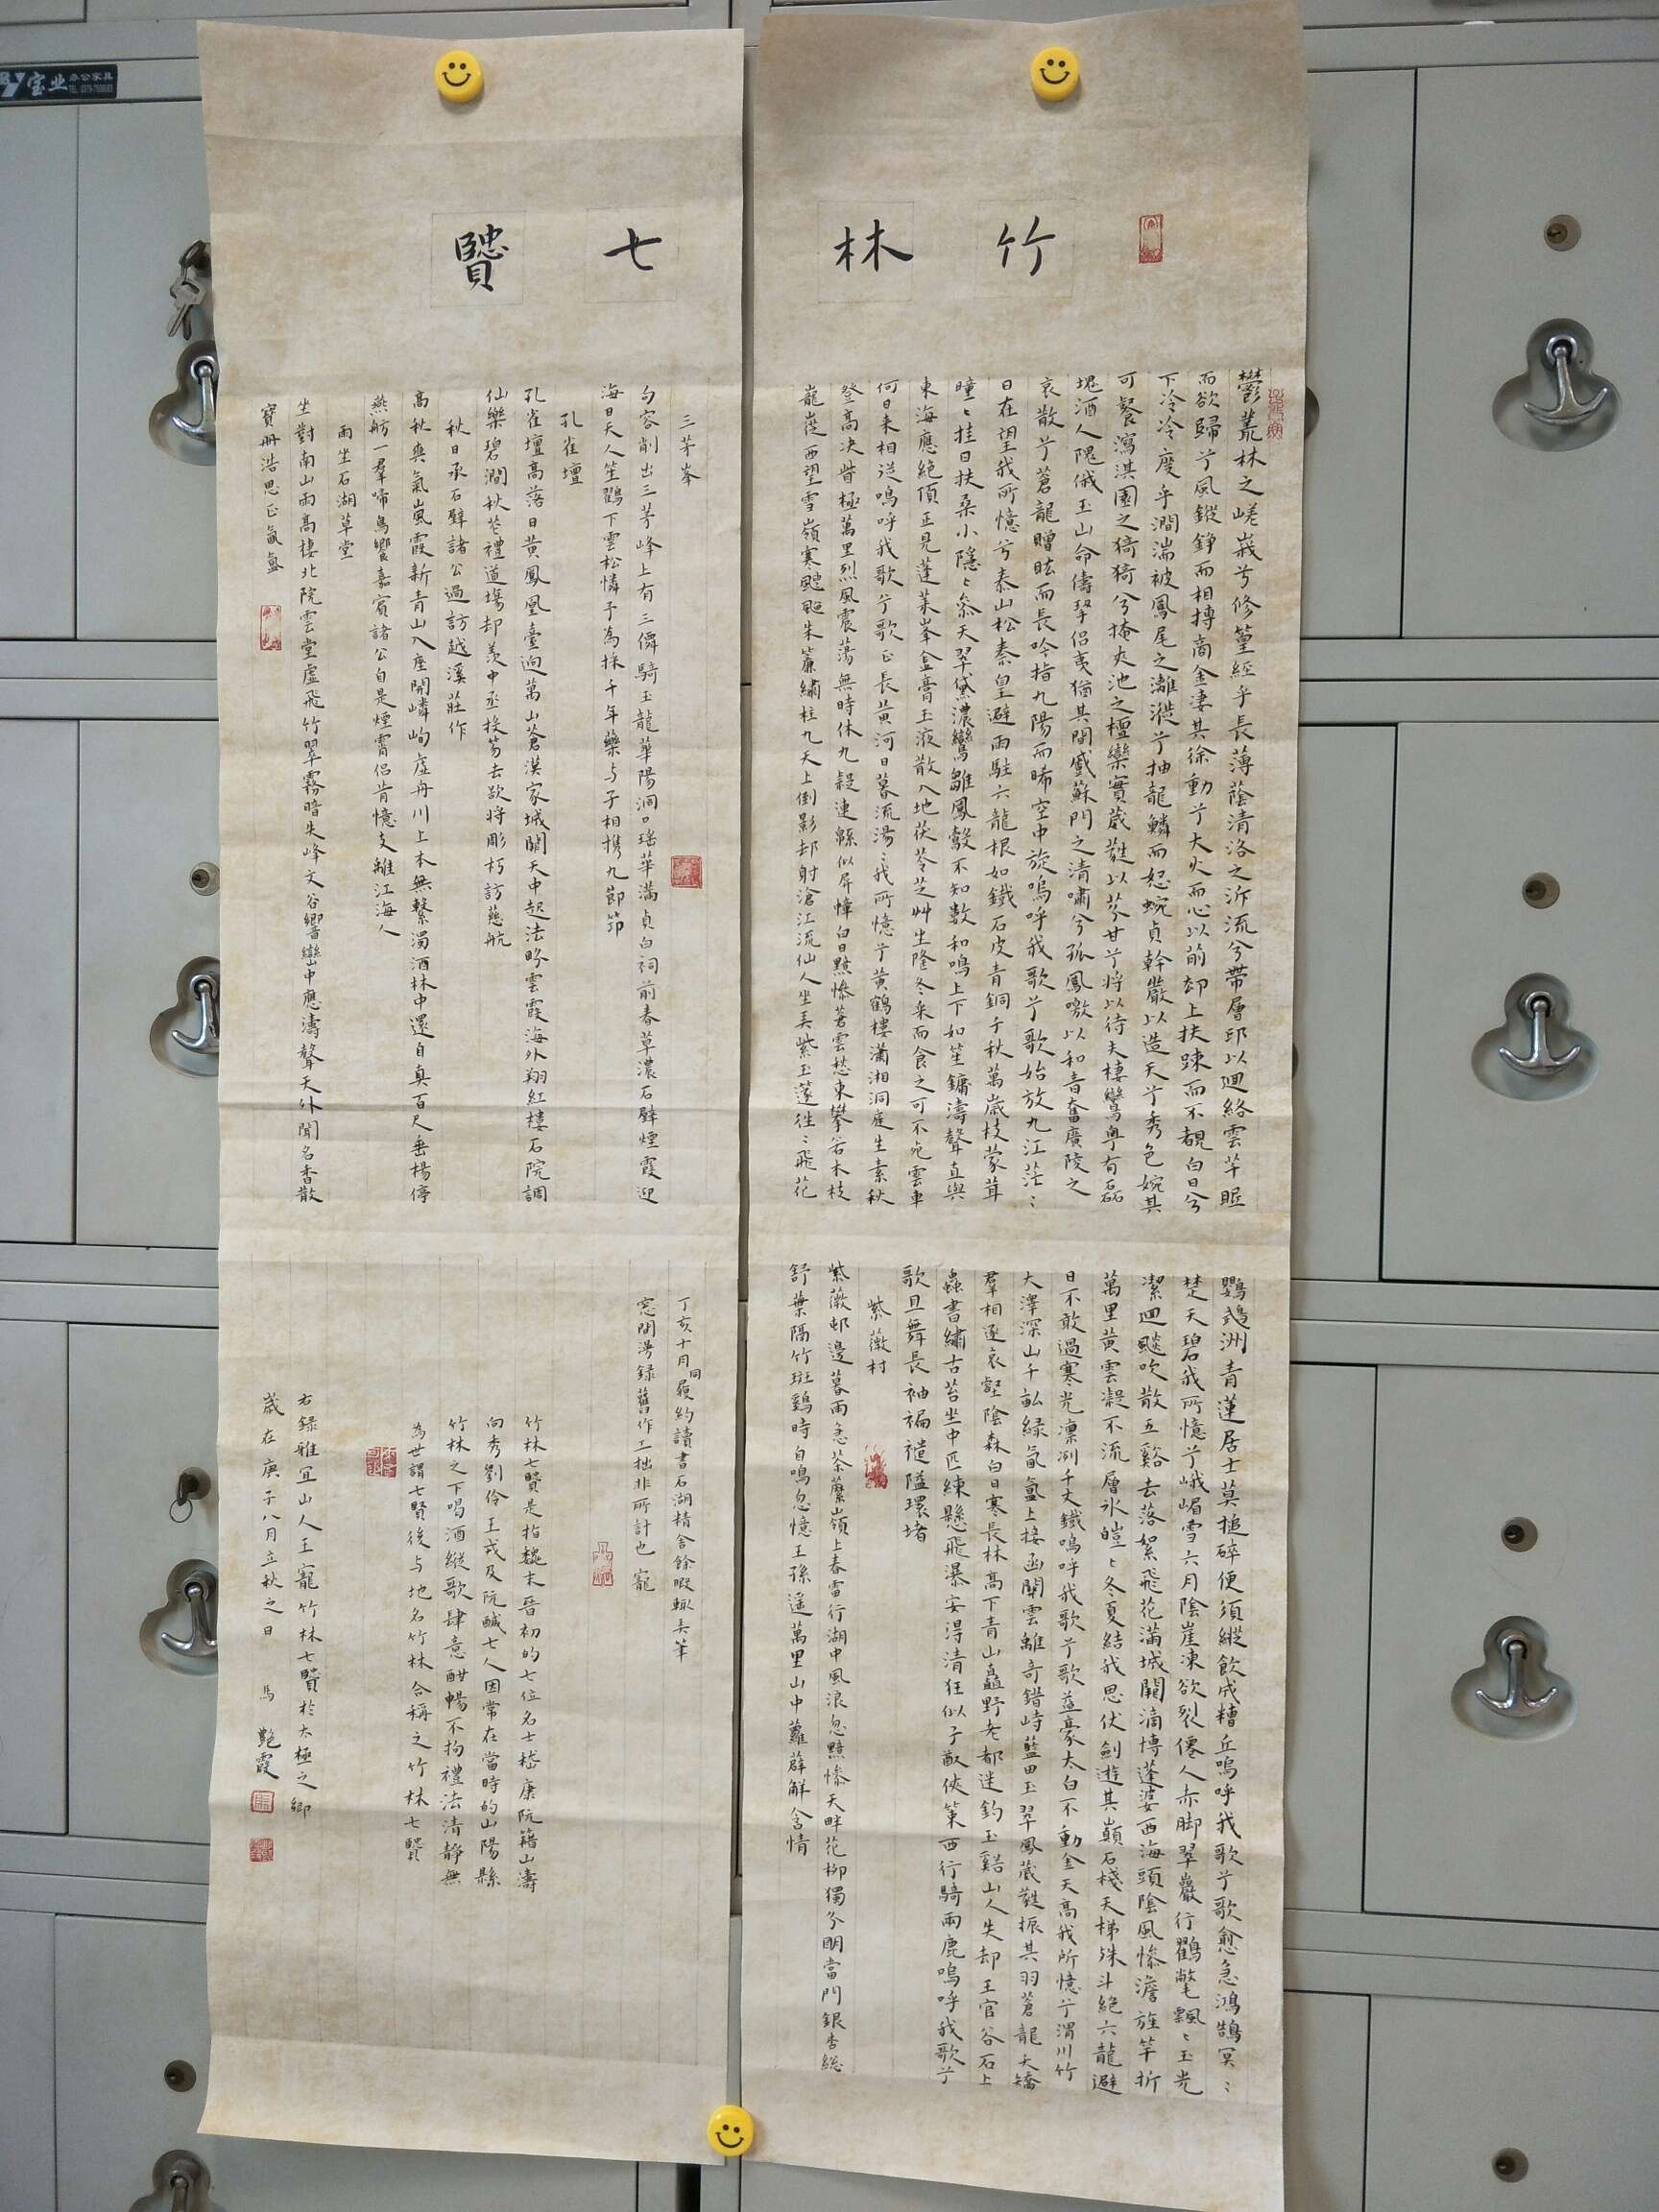 竹林七賢
鬱叢林之嵯峩兮修篁經乎長薄蔭清洛之泝流兮帶層邱以廻絡雲芊眠
而欲歸兮風鏦錚而相搏商金凄其徐動兮大火而心以前却上扶踈而不覩白日兮
下泠泠度乎澗湍被鳳尾之灕漇兮抽龍鱗而怒蜿貞幹嚴以造天兮秀色婉其
可餐瀉淇園之猗猗兮掩夾池之檀欒實葳蕤以芬甘兮将以待夫棲鸞粤有磊
塊酒人隗俄玉山命儔挐侣夷猶其間戲蘇門之清嘯兮孤鳳噭以和音奮廣陵之
哀散兮蒼龍贈眩而長吟指九陽而晞空中旋嗚呼我歌兮歌始放九江茫〻
日在望我所憶兮泰山松秦皇避雨駐六龍根如鐵石皮青銅千秋萬歲枝蒙茸
曈〻挂日扶桑小隱〻叅天翠黛濃鸞雛鳳鷇不知數和鳴上下如笙鏞濤聲直與
東海應絶頂正見蓬莱峯盒膏玉液散入地茯苓芝艸生隆冬采而食之可不死雲車
何日来相送嗚呼我歌兮歌正長黄河日暮流湯〻我所憶兮黄鶴樓瀟湘洞庭生素秋
登高决眥極萬里烈風震蕩無時休九嶷連緜似屏幛白日黯慘蒼雲愁東攀若木枝
嵸西望雪嶺寒颼颼朱簾繡柱九天上倒影却射滄江流仙人坐弄紫玉篴往〻飛花
鸚鵡洲青蓮居士莫搥碎便須縱飲成糟丘嗚呼我歌兮歌愈急鴻鵠冥〻
楚天碧我所憶兮峨嵋雪六月陰崖凍欲裂僊人赤脚翠巖行鸛氅飄〻玉光
潔迴飈吹散五谿去落絮飛花滿城闕滴博蓬婆西海頭陰風慘澹旌竿折
萬里黄雲凝不流層冰皚〻冬夏結我思伏劍遊其巔石棧天梯殊斗絶六龍避
日不敢過寒光凛冽千丈鐵嗚呼我歌兮歌益豪太白不動金天高我所憶兮渭川竹
大澤深山千畝緑氤氳上接函關雲離奇錯峙藍田玉翠鳳葳蕤振其羽蒼龍夭矯
羣相逐哀壑陰森白日寒長林高下青山矗野老都迷釣玉谿山人失却王官谷石上
蟲書繡古苔坐中匹練懸飛瀑安得清狂似子猷侠策西行騎兩鹿嗚呼我歌兮
歌且舞長袖褊褼隘環堵
紫薇村
紫薇邨邊暮雨急荼蘼嶺上春雷行湖中風浪忽黯慘天畔花柳獨分明當門銀杏総
舒葉隔竹斑鷄時自鳴忽憶王孫遥萬里山中蘿薜解含情
三茅峯
句容削出三茅峰上有三僊騎玉龍華陽洞口瑶華滿貞白祠前春草濃石壁煙霞迎
海日天人笙鶴下雲松憐予為採千年藥与子相携九節笻
孔雀壇
孔雀壇高落日黄鳳凰臺迥萬山蒼漢家城闕天中起法眎雲霞海外翔紅樓石院調
仙樂碧澗秋花禮道塲却羨中丞投笏去欲将彫朽訪慈航
秋日承石壁諸公過訪越溪莊作
高秋爽氣嵐霞新青山入座開嶙峋虚舟川上本無繫濁酒林中還自真百尺垂楊停
燕舫一羣啼鳥響嘉賓諸公自是煙霄侣肯憶支離江海人
雨坐石湖草堂
坐對南山雨高樓北院雲堂虚飛竹翠霧暗失峰文谷響巒中應濤聲天外聞名香散
寶冊浩思正氤氳
丁亥十月同履約讀書石湖精舍餘暇輙弄筆
窓間漫録舊作工拙非所計也寵
竹林七賢是指魏末晉初的七位名士嵇康阮籍山濤
向秀劉伶王戎及阮咸七人因常在當時的山陽縣
竹林之下喝酒縱歌肆意酣暢不拘禮法清靜無
為世謂七賢後与地名竹林合稱之竹林七賢
右録雅宜山人王寵竹林七賢於太極之鄉
歲在庚子八月立秋之日 馬艷霞
宝业
办公家具